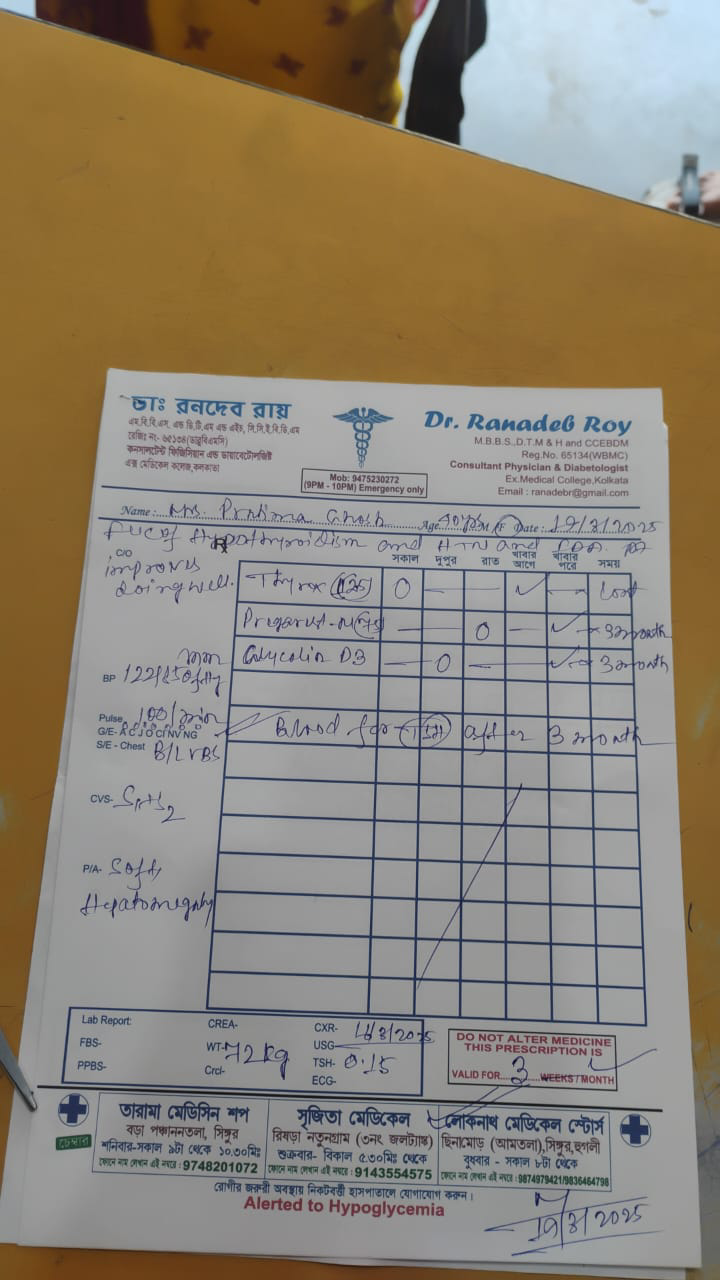 ডাঃ রনদেব রায়
এম.বি.বি.এস. এন্ড ডি.টি.এম এন্ড এইচ, সি.সি.ই.বি.ডি.এম
রেজিঃ নং- ৬৫১৩৪(ডাব্লুবিএমসি)
কনসালটেন্ট ফিজিসিয়ান এন্ড ডায়াবেটোলজিষ্ট
এক্স মেডিকেল কলেজ,কলকাতা
Mob: 9475230272
(9PM - 10PM) Emergency only
Dr. Ranadeb Roy
M.B.B.S.,D.T.M & H and CCEBDM
Reg.No. 65134(WBMC)
Consultant Physician & Diabetologist
Ex.Medical College,Kolkata
Email : ranadebr@gmail.com
Name: Mrs. Pratima Ghosh Age 40 yrs M/F Date: 19/8/2025
Hypothyroidism and HTN and
C/O
improves
doing well.
সকাল দুপুর রাত খাবার আগে খাবার পরে সময়
Thyrox (125) O — — ✓ —
— — O — ✓ → 3 month
D3 — O — ✓ → 3 month
Blood for after 3 month
BP 122/
Pulse 100/min
G/E-
S/E - Chest B/L VBS
CVS- S1+S2
P/A- Soft,
Lab Report:
FBS-
PPBS-
CREA-
WT- 72 kg
Crcl-
CXR-
USG
TSH- 0.15
ECG-
DO NOT ALTER MEDICINE
THIS PRESCRIPTION IS
VALID FOR...3...WEEKS / MONTH
চেম্বার
তারামা মেডিসিন শপ
বড়া পঞ্চাননতলা, সিঙ্গুর
শনিবার-সকাল ৯টা থেকে ১০.৩০মিঃ
ফোনে নাম লেখান এই নম্বরে : 9748201072
সৃজিতা মেডিকেল
রিষড়া নতুনগ্রাম (৩নং জলট্যাঙ্ক)
শুক্রবার- বিকাল ৫.৩০মিঃ থেকে
ফোনে নাম লেখান এই নম্বরে : 9143554575
লোকনাথ মেডিকেল স্টোর্স
ছিনামোড় (আমতলা),সিঙ্গুর,হুগলী
বুধবার - সকাল ৮টা থেকে
ফোনে নাম লেখান এই নম্বরে : 9874979421/9836464798
রোগীর জরুরী অবস্থায় নিকটবর্তী হাসপাতালে যোগাযোগ করুন।
Alerted to Hypoglycemia
19/8/2025